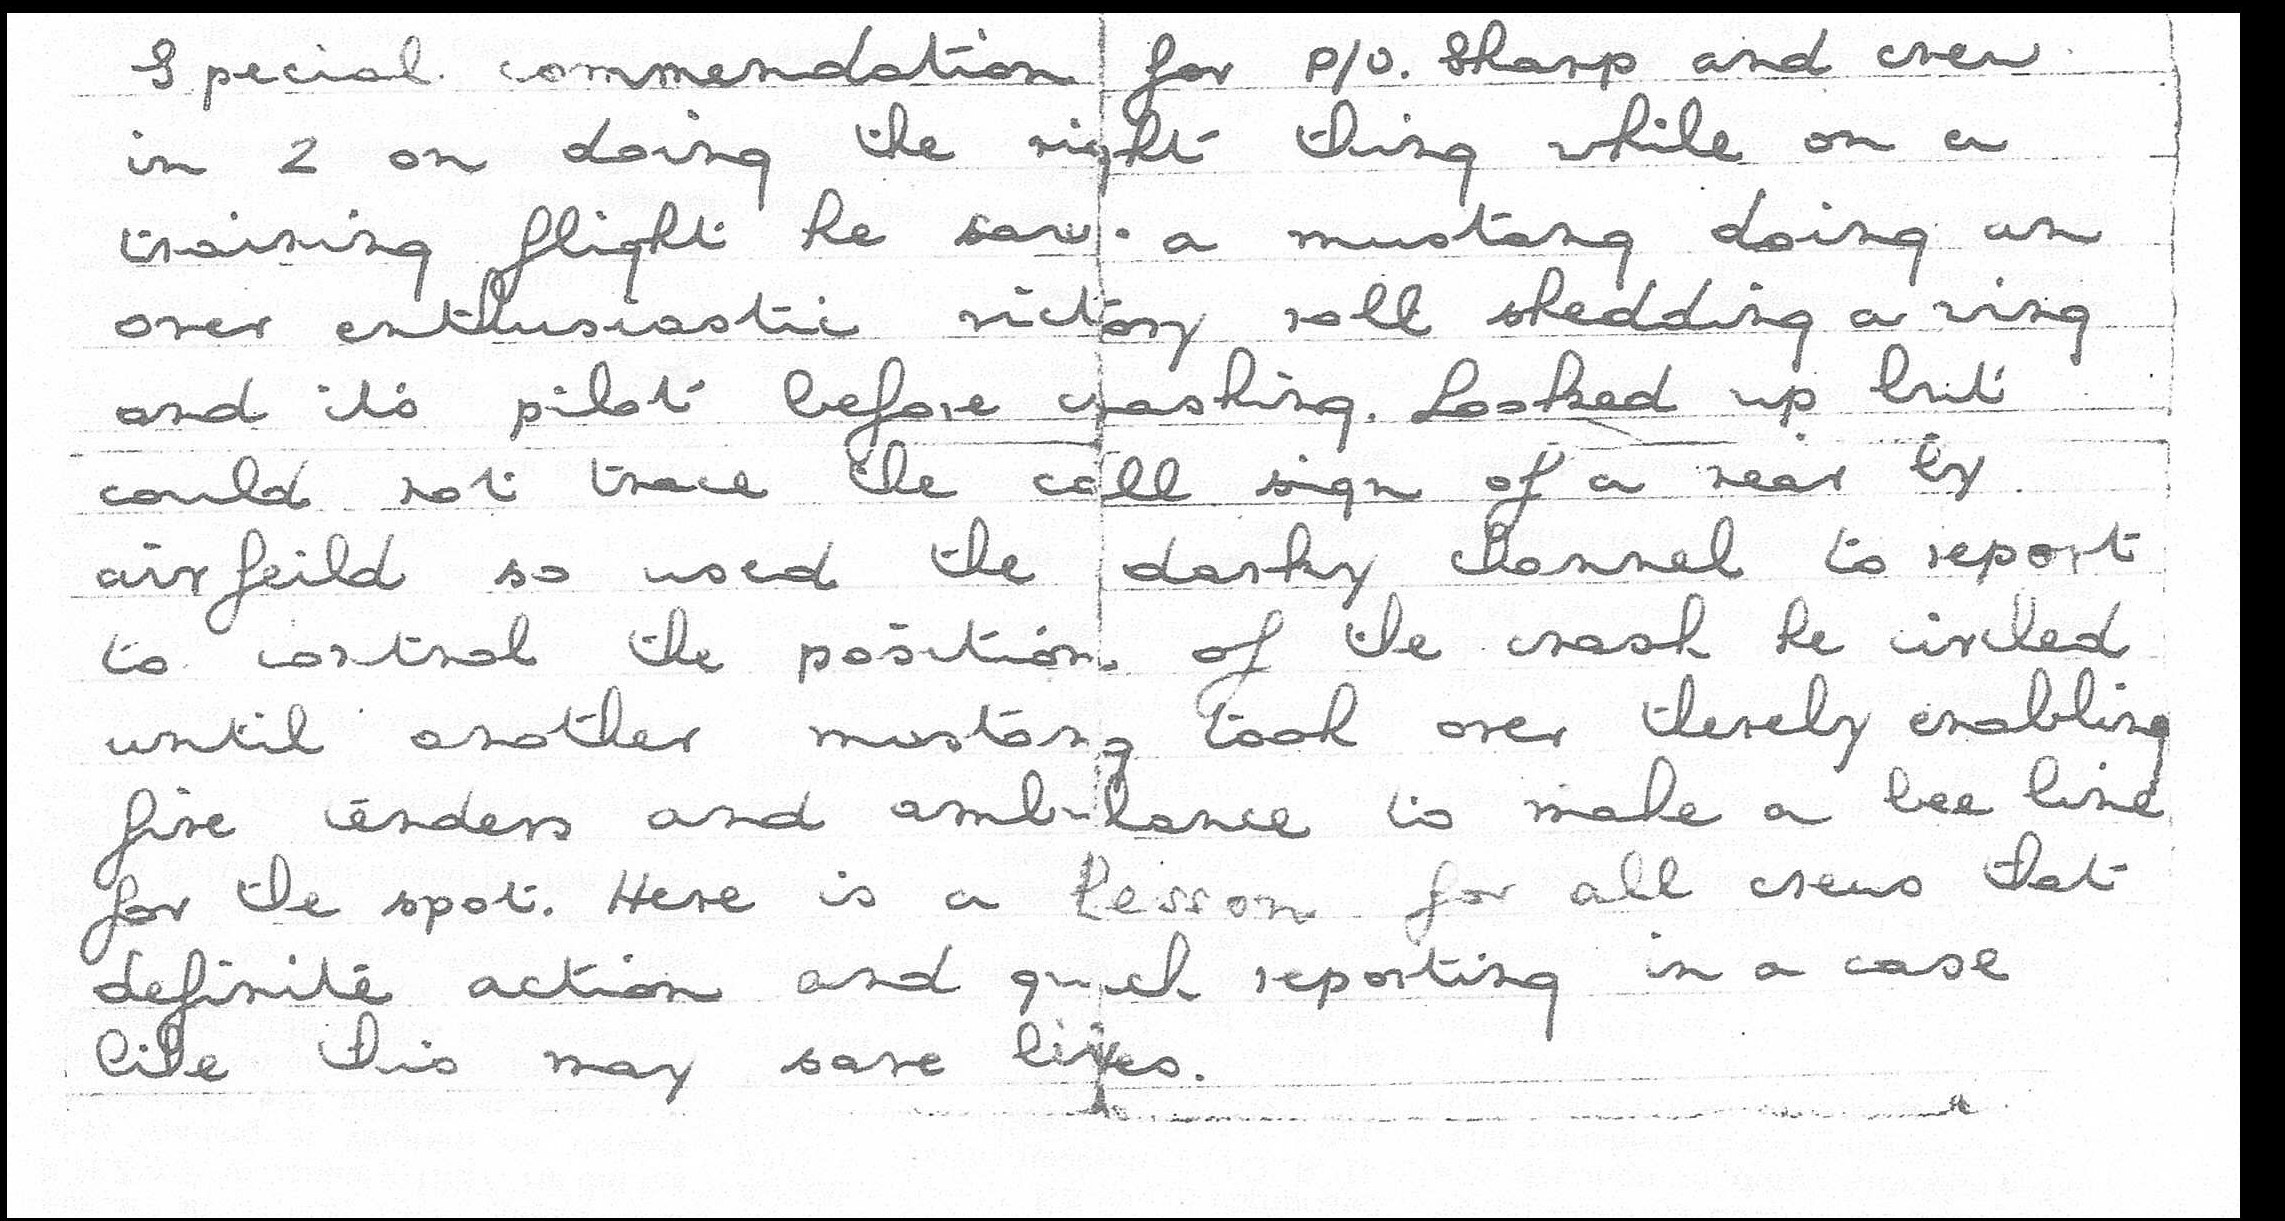 Special commendation for P/O. Sharp and crew
in Z on doing the right thing while on a
training flight he saw a mustang doing an
over enthusiastic victory roll shedding a wing
and its pilot before crashing. Looked up but
could not trace the call sign of a near by
airfeild so used the darky channel to report
to control the position of the crash he circled
until another mustang took over thereby enabling
fire tenders and ambulance to make a bee line
for the spot. Here is a lesson for all crews that
definite action and quick reporting in a case
like this may save lives.